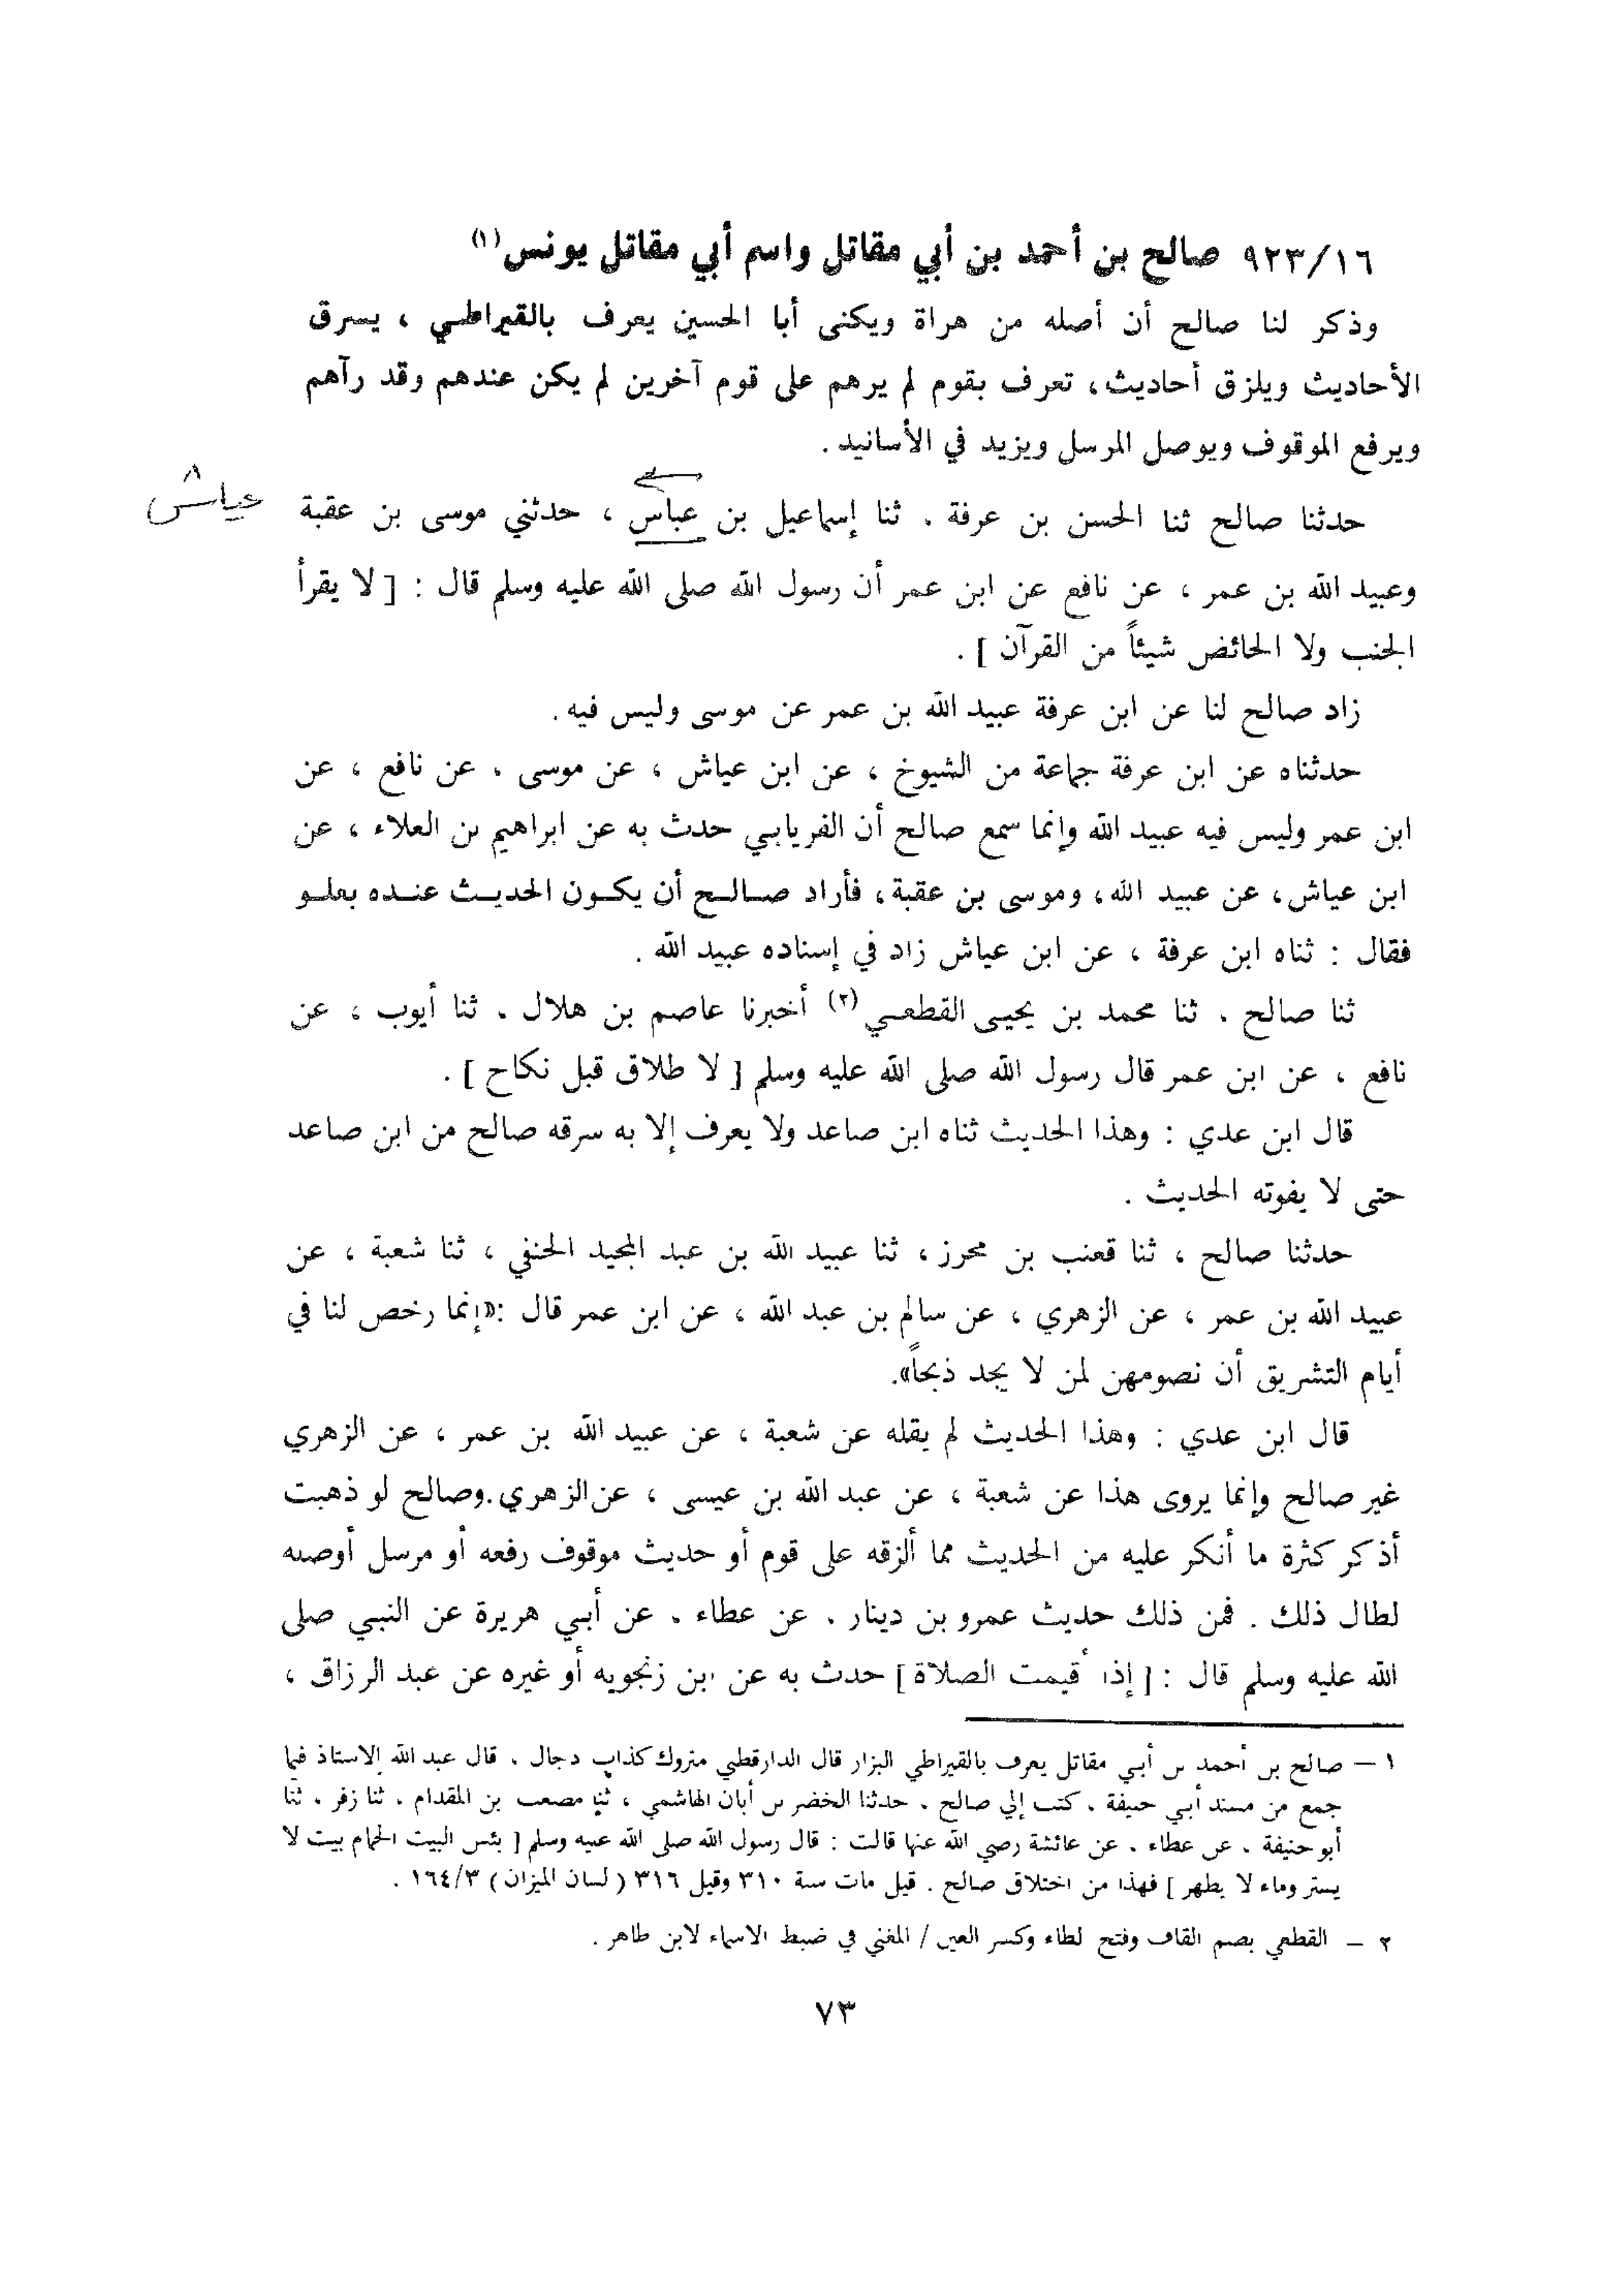 ٩٢٣/١٦ صالح بن أحمد بن أبي مقاتل واسم أبي مقاتل يونس (١)
وذكر لنا صالح أن أصله من هراة ويكنى أبا الحسين يعرف بالقيراطي ، يسرق
الأحاديث ويلزق أحاديث، تعرف بقوم لم يرهم على قوم آخرين لم يكن عندهم وقد رآهم
ويرفع الموقوف ويوصل المرسل ويزيد في الأسانيد .
حدثنا صالح ثنا الحسن بن عرفة . ثنا إسماعيل بن عباس ، حدثني موسى بن عقبة
عياش
وعبيد الله بن عمر ، عن نافع عن ابن عمر أن رسول الله صلى الله عليه وسلم قال : [ لا يقرأ
الجنب ولا الحائض شيئاً من القرآن ] .
زاد صالح لنا عن ابن عرفة عبيد الله بن عمر عن موسى وليس فيه .
حدثناه عن ابن عرفة جماعة من الشيوخ ، عن ابن عياش ، عن موسى . عن نافع ، عن
ابن عمر وليس فيه عبيد الله وإنما سمع صالح أن الفريابي حدث به عن ابراهيم بن العلاء ، عن
ابن عياش، عن عبيد الله، وموسى بن عقبة، فأراد صالح أن يكون الحديث عنده بعلو
فقال : ثناه ابن عرفة ، عن ابن عياش زاد في إسناده عبيد الله .
ثنا صالح . ثنا محمد بن يحيى القطعي (٢) أخبرنا عاصم بن هلال . ثنا أيوب ، عن
نافع ، عن ابن عمر قال رسول الله صلى الله عليه وسلم [ لا طلاق قبل نكاح ] .
قال ابن عدي : وهذا الحديث ثناه ابن صاعد ولا يعرف إلا به سرقه صالح من ابن صاعد
حتى لا يفوته الحديث .
حدثنا صالح ، ثنا قعنب بن محرز ، ثنا عبيد الله بن عبد المجيد الحنفي ، ثنا شعبة ، عن
عبيد الله بن عمر ، عن الزهري ، عن سالم بن عبد الله ، عن ابن عمر قال :«إنما رخص لنا في
أيام التشريق أن نصومهن لمن لا يجد ذبحاً».
قال ابن عدي : وهذا الحديث لم يقله عن شعبة ، عن عبيد الله بن عمر ، عن الزهري
غير صالح وإنما يروى هذا عن شعبة ، عن عبد الله بن عيسى ، عن الزهري.وصالح لو ذهبت
أذكر كثرة ما أنكر عليه من الحديث مما ألزقه على قوم أو حديث موقوف رفعه أو مرسل أوصله
لطال ذلك . فمن ذلك حديث عمرو بن دينار . عن عطاء . عن أبي هريرة عن النبي صلى
الله عليه وسلم قال : [ إذا أقيمت الصلاة ] حدث به عن ابن زنجويه أو غيره عن عبد الرزاق ،
١ — صالح بن أحمد بن أبي مقاتل يعرف بالقيراطي البزار قال الدارقطني متروك كذاب دجال . قال عبد الله الاستاذ فيما
جمع من مسند أبي حنيفة . كتب إلي صالح . حدثنا الخضر بن أبان الهاشمي ، ثنا مصعب بن المقدام . ثنا زفر . ثنا
أبو حنيفة . عن عطاء . عن عائشة رضي الله عنها قالت : قال رسول الله صلى الله عليه وسلم [ بئس البيت الحمام بيت لا
يستر وماء لا يطهر ] فهذا من اختلاق صالح . قيل مات سنة ٣١٠ وقيل ٣١٦ ( لسان الميزان ) ١٦٤/٣ .
٢ — القطعي بضم القاف وفتح لطاء وكسر العين / المغني في ضبط الاسماء لابن طاهر .
٧٣